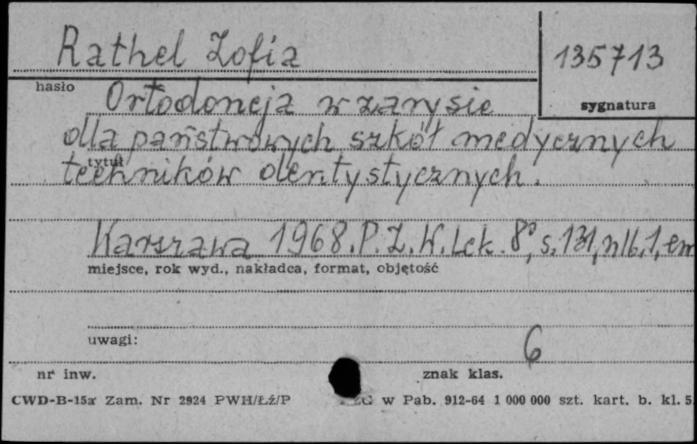 Rathel Zofia
135713
hasło
sygnatura
Ortodoncja w zarysie
dla państwowych szkół medycznych
tytuł
techników dentystycznych.
Warszawa 1968. P.Z.W.Lek. 8°, s. 131, nlb. 1, err
miejsce, rok wyd., nakładca, format, objętość
uwagi:
6
nr inw.
znak klas.
CWD-B-15a Zam. Nr 2924 PWH/Łż/P w Pab. 912-64 1 000 000 szt. kart. b. kl. 5